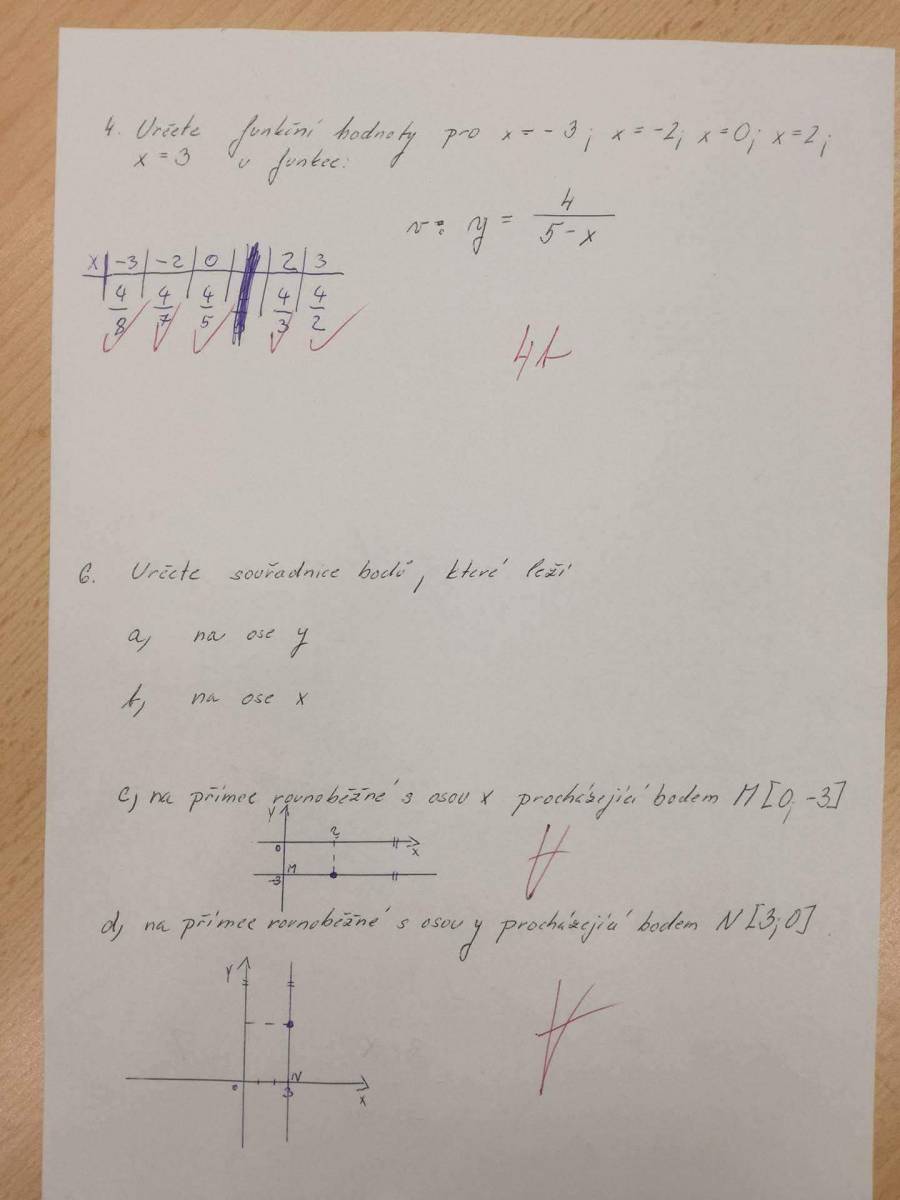 4. Určete funkční hodnoty pro x = -3; x = -2; x = 0; x = 2;
x = 3 u funkce:
v: y = 4/(5-x)
x | -3 | -2 | 0 | 2 | 3
4/8 | 4/7 | 4/5 | 4/3 | 4/2
6. Určete souřadnice bodů, které leží
a, na ose y
b, na ose x
c, na přímce rovnoběžné s osou x procházející bodem M[0; -3]
y
0
x
M
-3
d, na přímce rovnoběžné s osou y procházející bodem N[3; 0]
y
0
N
3
x